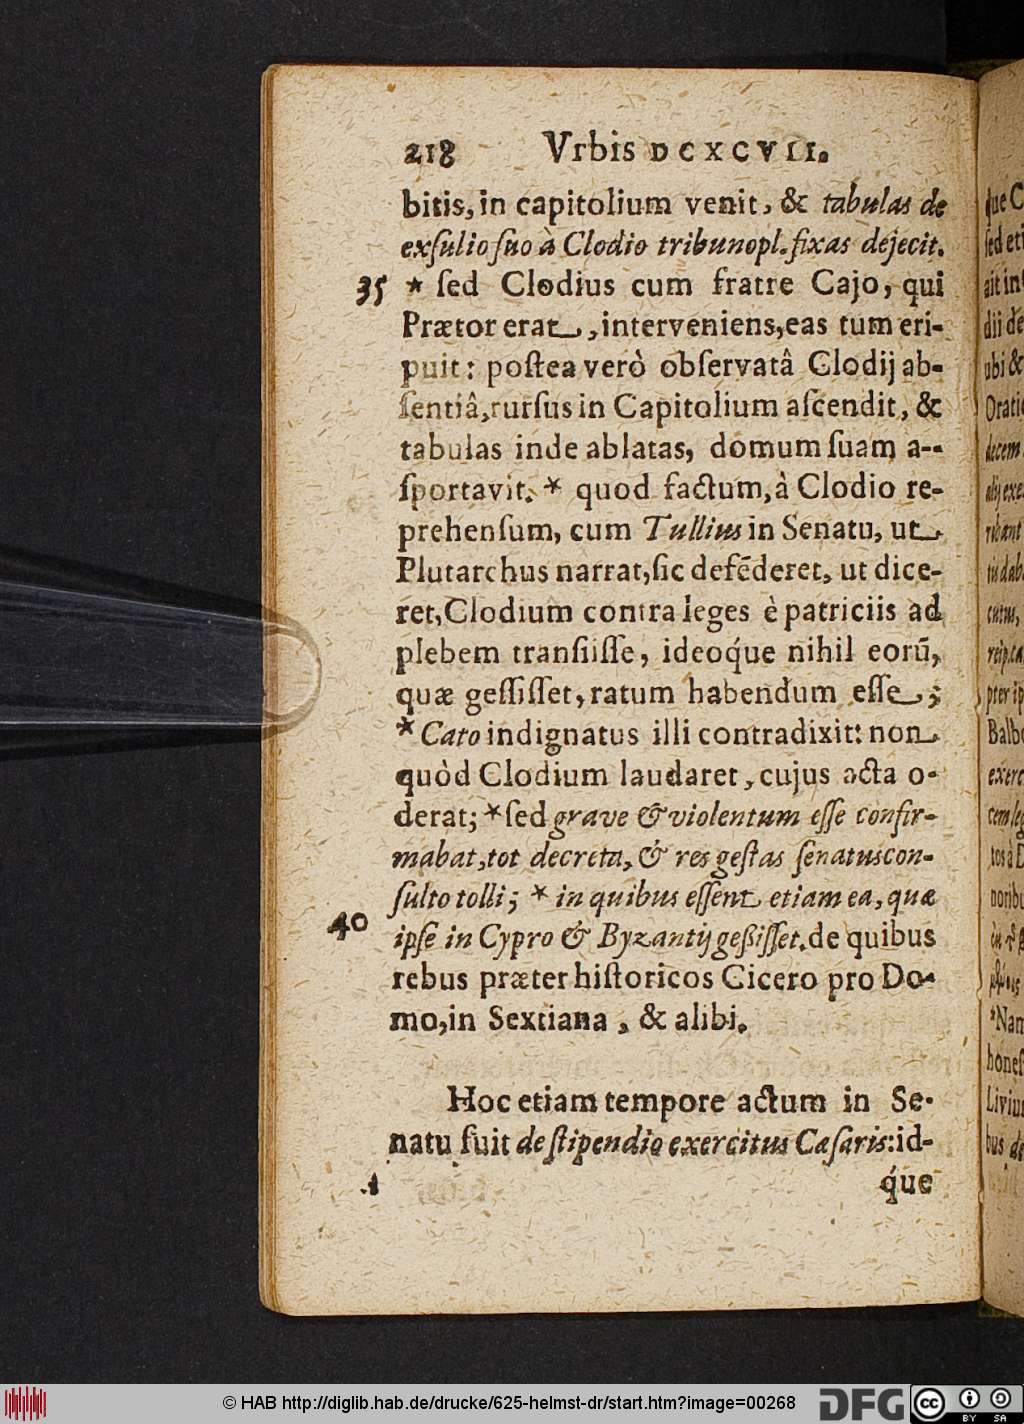 218 Vrbis DCXCVII.
bitis, in capitolium venit, & tabulas de
exſulio ſuo à Clodio tribuno pl. fixas dejecit.
35 * ſed Clodius cum fratre Cajo, qui
Prætor erat, interveniens, eas tum eri-
puit: poſtea verò obſervatâ Clodij ab-
ſentiâ, rurſus in Capitolium aſcendit, &
tabulas inde ablatas, domum ſuam a--
ſportavit. * quod factum, à Clodio re-
prehenſum, cum Tullius in Senatu, ut
Plutarchus narrat, ſic defẽderet, ut dice-
ret, Clodium contra leges è patriciis ad
plebem tranſiiſſe, ideoq́ue nihil eorũ,
quæ geſſiſſet, ratum habendum eſſe;
* Cato indignatus illi contradixit: non
quòd Clodium laudaret, cujus acta o-
derat; * ſed grave & violentum eſſe confir-
mabat, tot decreta, & res geſtas ſenatuscon-
ſulto tolli; * in quibus eſſent etiam ea, quæ
40 ipſe in Cypro & Byzantij geßiſſet. de quibus
rebus præter hiſtoricos Cicero pro Do-
mo, in Sextiana, & alibi.
Hoc etiam tempore actum in Se-
natu fuit de ſtipendio exercitus Cæſaris: id-
q́ue
que C
ſed eti
ait in
dii de
ubi &
Oratio
decem
alij exe
ribant
tu dab
cutus,
reip. ca
pter ip
Balbo
exerc
cem leg
tos à D
noribu
*Nam
honeſ
Livius
bus de
© HAB http://diglib.hab.de/drucke/625-helmst-dr/start.htm?image=00268
DFG
cc
BY SA